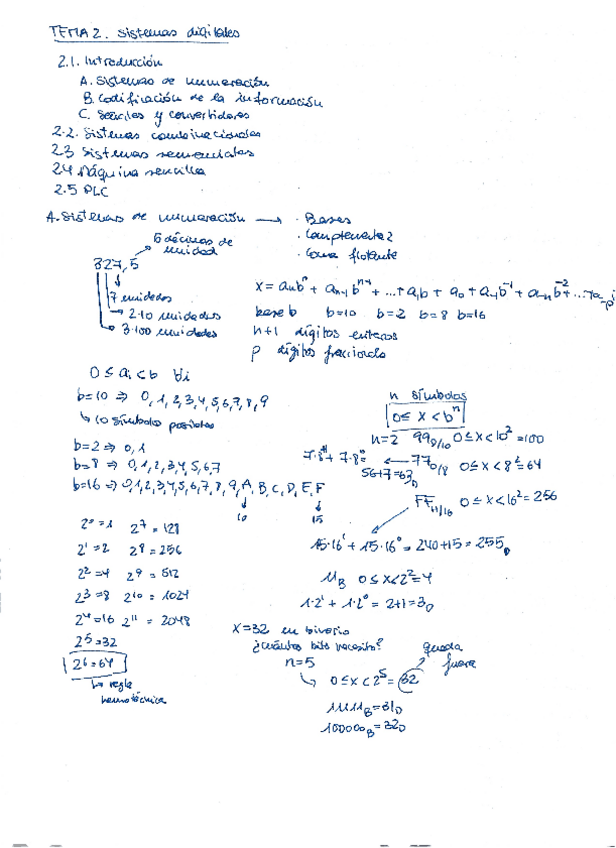 TEMA 2. Sistemas digitales
2.1. Introducción
A. Sistemas de numeración
B. Codificación de la información
C. Señales y convertidores
2.2. Sistemas combinacionales
2.3 Sistemas secuenciales
2.4 Máquina sencilla
2.5 PLC
A. Sistemas de numeración → · Bases
· Complemento 2
· Coma flotante
5 décimas de unidad
327,5
7 unidades
2·10 unidades
3·100 unidades
x = aₙbⁿ + aₙ₋₁bⁿ⁻¹ + ... + a₁b + a₀ + a₋₁b⁻¹ + a₋ₙb⁻² + ... + a₋p
base b b=10 b=2 b=8 b=16
n+1 dígitos enteros
p dígitos fraccionario
0 ≤ aᵢ < b ∀i
b=10 ⇒ 0,1,2,3,4,5,6,7,8,9
↳ 10 símbolos posibles
b=2 ⇒ 0,1
b=8 ⇒ 0,1,2,3,4,5,6,7
b=16 ⇒ 0,1,2,3,4,5,6,7,8,9,A,B,C,D,E,F
10 15
n símbolos
0 ≤ x < bⁿ
n=2 99D/10 0≤x<10²=100
7·8¹ + 7·8⁰ ← 77O/8 0≤x<8²=64
56+7=63D
FFH/16 0≤x<16²=256
15·16¹ + 15·16⁰ = 240+15 = 255D
11B 0≤x<2²=4
1·2¹ + 1·2⁰ = 2+1 = 3D
2⁰=1 2⁷=128
2¹=2 2⁸=256
2²=4 2⁹=512
2³=8 2¹⁰=1024
2⁴=16 2¹¹=2048
2⁵=32
2⁶=64
↳ regla
nemotécnica
x=32 en binario
¿cuántos bits necesito?
n=5
↳ 0≤x<2⁵=32
queda fuera
11111B=31D
100000B=32D